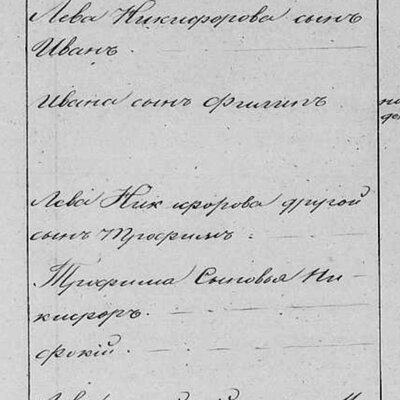 Лева Никифорова сынъ
Иванъ.
Ивана сынъ Филипъ
Лева Никифорова другой
сынъ Трофимъ.
Трофима Сыновья Ни-
кифоръ.